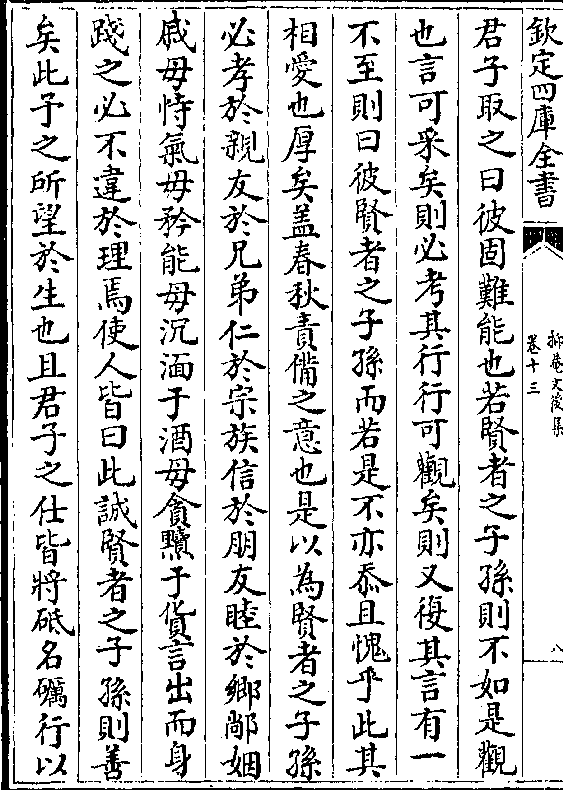 欽定四庫全書
抑菴文後集
卷十三
八
君子取之曰彼固難能也若賢者之子孫則不如是觀
也言可采矣則必考其行行可觀矣則又復其言有一
不至則曰彼賢者之子孫而若是不亦忝且愧乎此其
相愛也厚矣盖春秋責備之意也是以為賢者之子孫
必孝於親友於兄弟仁於宗族信於朋友睦於鄉鄰姻
戚毋恃氣毋矜能毋沉湎于酒毋貪黷于貨言出而身
踐之必不違於理焉使人皆曰此誠賢者之子孫則善
矣此予之所望於生也且君子之仕皆將砥名礪行以